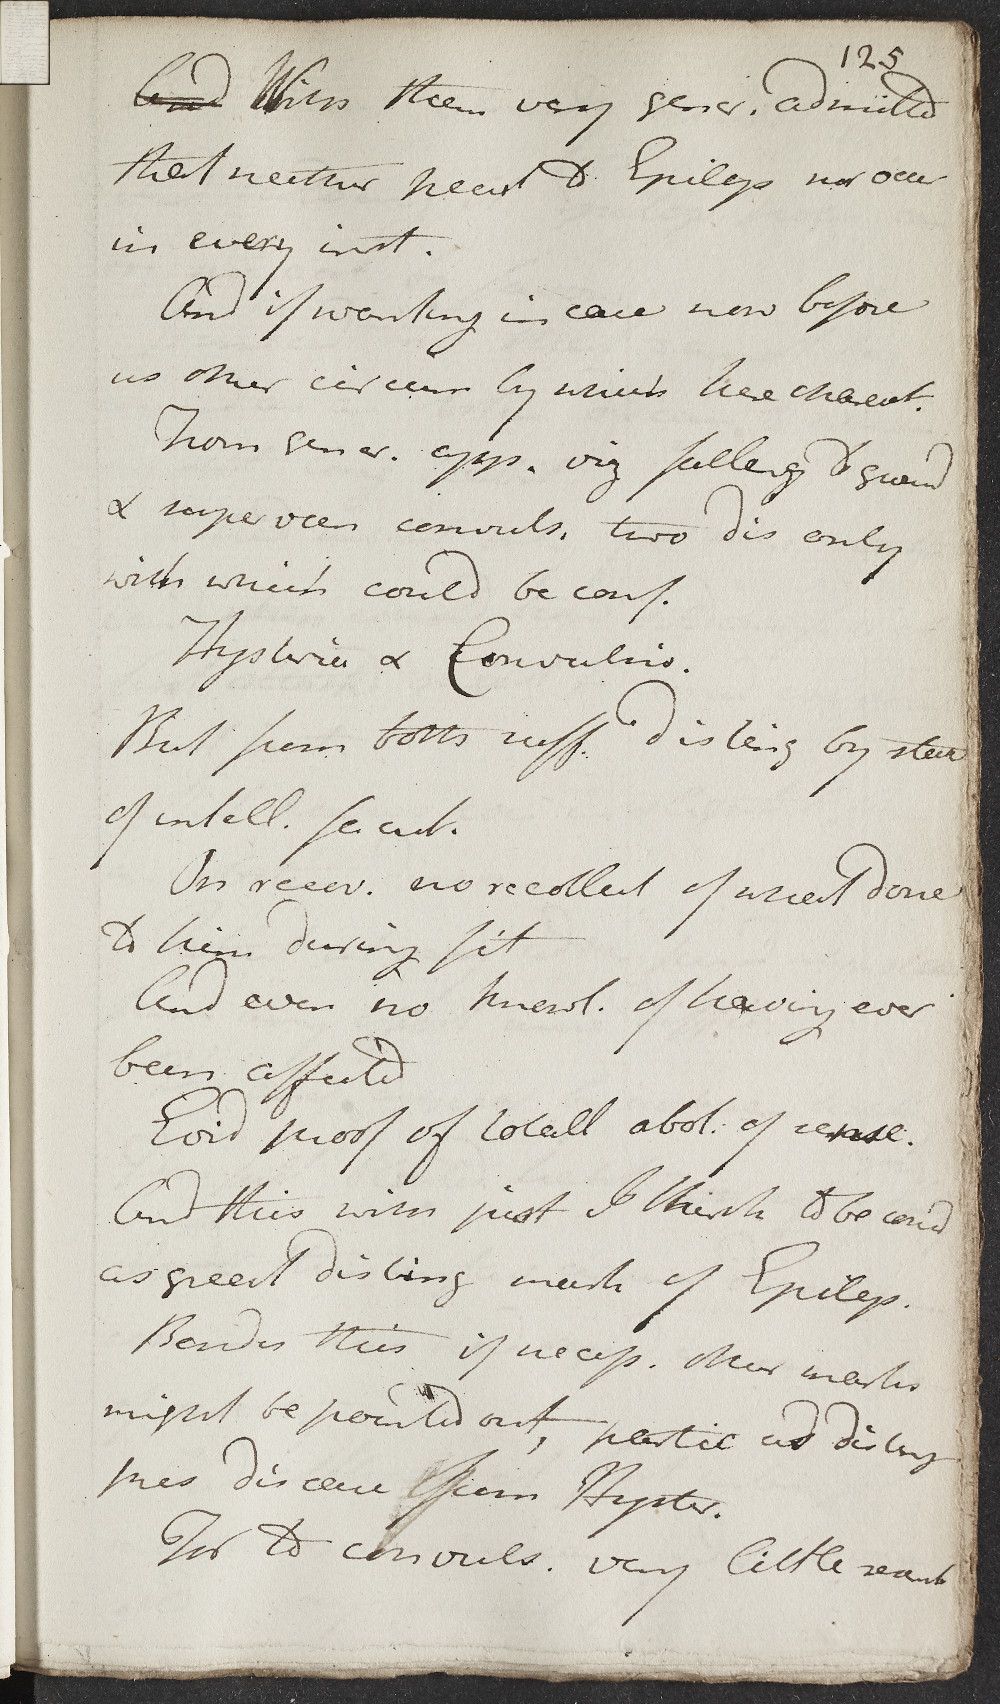 125
And With them very gener. admitted
that neither pecul to Epileps nor occur
in every inst.
And if wanting in case now before
us other circum by which here charact.
From gener. app. viz falling to ground
& superveen convuls. two dis only
with which could be conf.
Hysteria & Convulsio.
But from both suff. disting by state
of intell. facult.
On recov. no recollect of what done
to him during fit
And even no knowl. of having ever
been affected
Evid proof of totall abol. of sense.
And this with just I think to be consid
as great disting mark of Epileps.
Besides this if necess. other marks
might be pointed out, partic as disting
pres disease from Hyster.
For to convuls. very little resemb